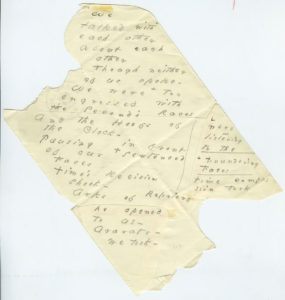 We
talked with
each other
about each
other
Though neither
of us spoke -
We were
engrossed with
the Second's Races
And the Hoofs of
the Clock -
Pausing in front
of our
Faces
Time's Decision
shook -
Arks of Reprieve
he opened
to us -
Ararats -
we took -
were
listening
to the
Foundering
Faces
time compas
sion took